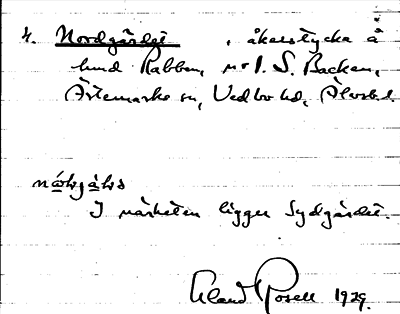 4. Nordgärdet, åkerstycke å
hmd Rabben, nr 1. S. Backen,
Ärtemarks sn, Vedbo hd, Älvsbd.
I närheten ligger Sydgärdet.
Erland Rosell 1929.